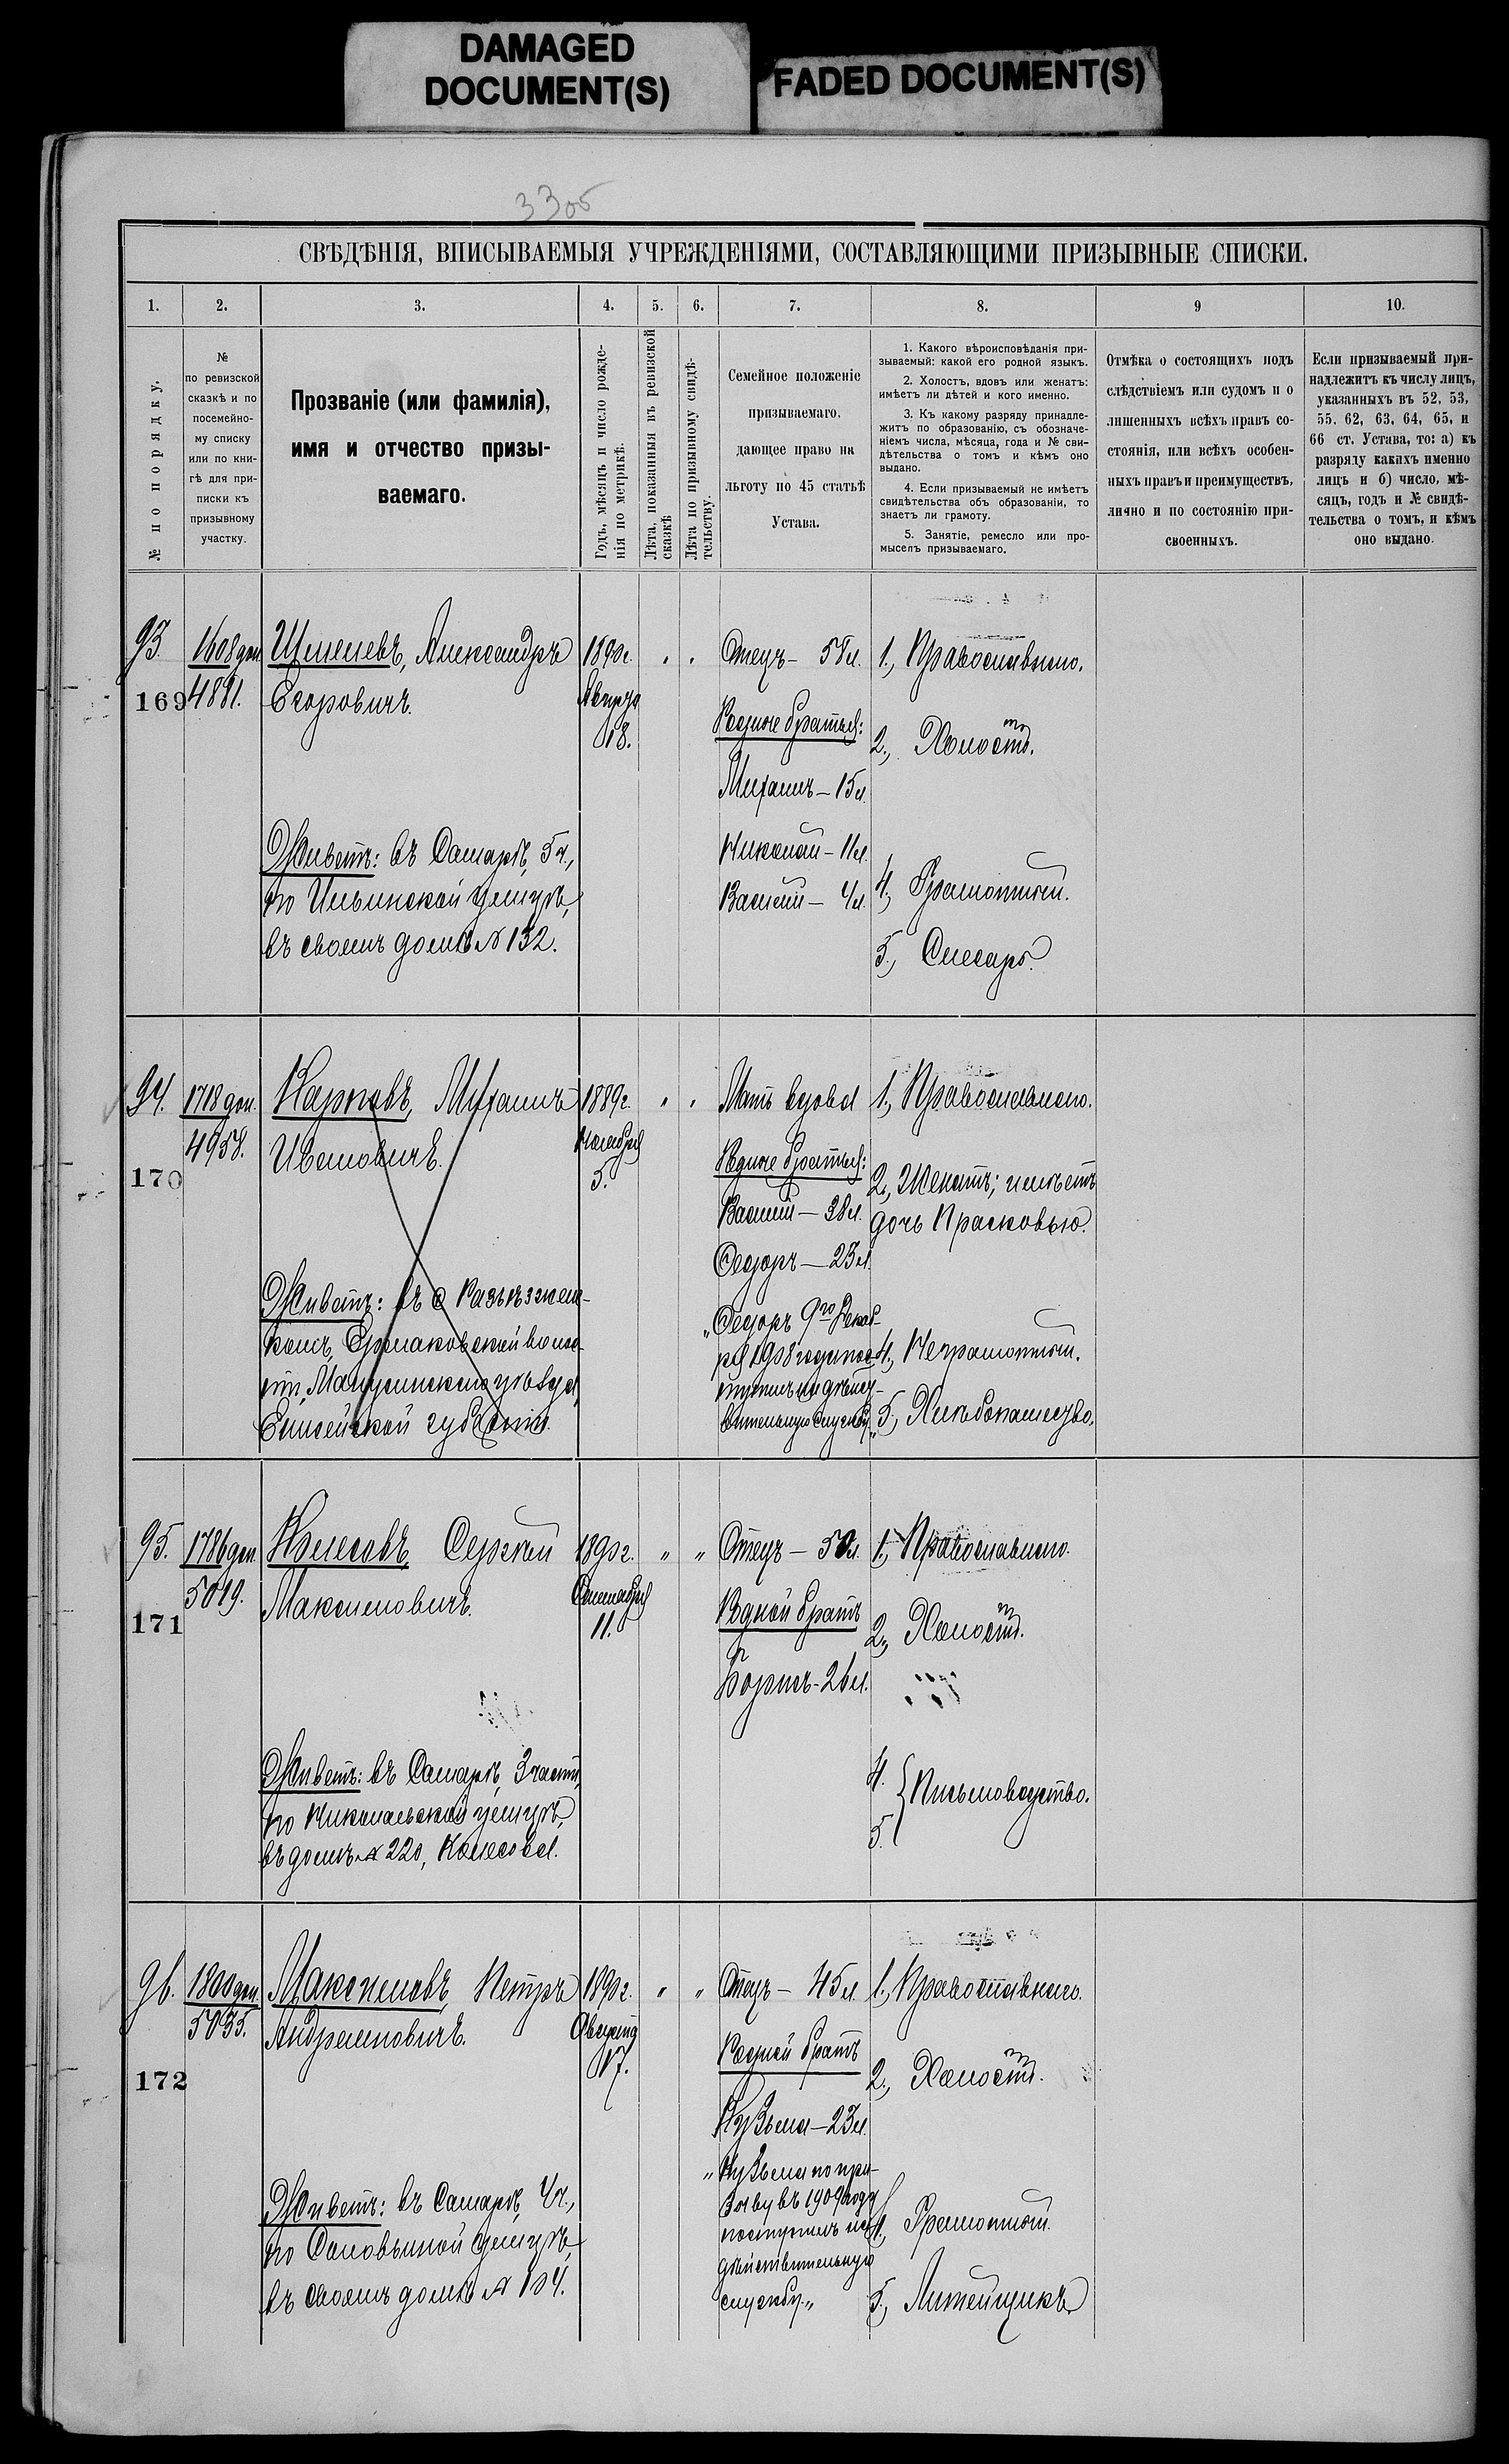 DAMAGED
DOCUMENT(S)
FADED DOCUMENT(S)
33об
СВѢДѢНІЯ, ВПИСЫВАЕМЫЯ УЧРЕЖДЕНІЯМИ, СОСТАВЛЯЮЩИМИ ПРИЗЫВНЫЕ СПИСКИ.
1. 2. 3. 4. 5. 6. 7. 8. 9 10.
№ по порядку.
№
по ревизской
сказкѣ и по
посемейно-
му списку
или по кни-
гѣ для при-
писки къ
призывному
участку.
Прозваніе (или фамилія),
имя и отчество призы-
ваемаго.
Годъ, мѣсяцъ и число рожде-
нія по метрикѣ.
Лѣта, показанныя въ ревизской
сказкѣ
Лѣта по призывному свидѣ-
тельству.
Семейное положеніе
призываемаго,
дающее право на
льготу по 45 статьѣ
Устава.
1. Какого вѣроисповѣданія при-
зываемый: какой его родной языкъ.
2. Холостъ, вдовъ или женатъ:
имѣетъ ли дѣтей и кого именно.
3. Къ какому разряду принадле-
житъ по образованію, съ обозначе-
ніемъ числа, мѣсяца, года и № сви-
дѣтельства о томъ и кѣмъ оно
выдано.
4. Если призываемый не имѣетъ
свидѣтельства объ образованіи, то
знаетъ ли грамоту.
5. Занятіе, ремесло или про-
мыселъ призываемаго.
Отмѣка о состоящихъ подъ
слѣдствіемъ или судомъ и о
лишенныхъ всѣхъ правъ со-
стоянія, или всѣхъ особен-
ныхъ правъ и преимуществъ,
лично и по состоянію при-
своенныхъ.
Если призываемый при-
надлежитъ къ числу лицъ,
указанныхъ въ 52, 53,
55, 62, 63, 64, 65, и
66 ст. Устава, то: а) къ
разряду какихъ именно
лицъ и б) число, мѣ-
сяцъ, годъ и № свидѣ-
тельства о томъ, и кѣмъ
оно выдано.
93.
169
1608 доп.
4881.
Шмелевъ, Александръ
Егоровичъ.
Живетъ: въ Самарѣ, 5 ч.,
по Ильинской улицѣ,
въ своемъ домѣ № 132.
1890 г.
Августа
18.
Отецъ — 58 л.
Родные братья:
Михаилъ — 15 л.
Николай — 11 л.
Василій — 4 л.
1., Православнаго.
2., Холостъ.
4., Грамотный.
5., Слесарь.
94.
170
1718 доп.
4958.
Карповъ, Михаилъ
Ивановичъ.
Живетъ: въ с Разъѣзжен-
комъ, Ермаковской воло-
сти, Минусинскаго уѣзда,
Енисейской губерніи.
1889 г.
Ноября
5.
Мать вдова
Родные братья:
Василій — 38 л.
Ѳедоръ — 23 л.
„Ѳедоръ 9го Декаб-
ря 1908 года пос-
тупилъ на дѣйст-
вительную службу„
1., Православнаго.
2., Женатъ; имѣетъ
дочь Прасковью.
4., Неграмотный.
5., Хлѣбопашество.
95.
171
1786 доп.
5019.
Колесовъ, Сергей
Максимовичъ.
Живетъ: въ Самарѣ, 3 части,
по Никольской улицѣ,
въ домѣ № 220, Колесова.
1890 г.
Сентября
11.
" "
Отецъ — 50 л.
Родной братъ
Борисъ - 26 л.
1., Православнаго.
2., Холостъ.
4.
5.
{ Письмоводство.
96.
172
1800 доп.
5035.
Максимовъ, Петръ
Андреяновичъ.
Живетъ: въ Самарѣ, 4 ч.,
по Соловьиной улицѣ,
въ своемъ домѣ № 104.
1890 г.
Августа
17.
" "
Отецъ — 45 л.
Родной братъ
Кузьма — 23 л.
„Кузьма по при-
зыву въ 1909 году
поступилъ на
дѣйствительную
службу.„
1., Православнаго.
2., Холостъ.
4., Грамотный.
5., Литейщикъ.